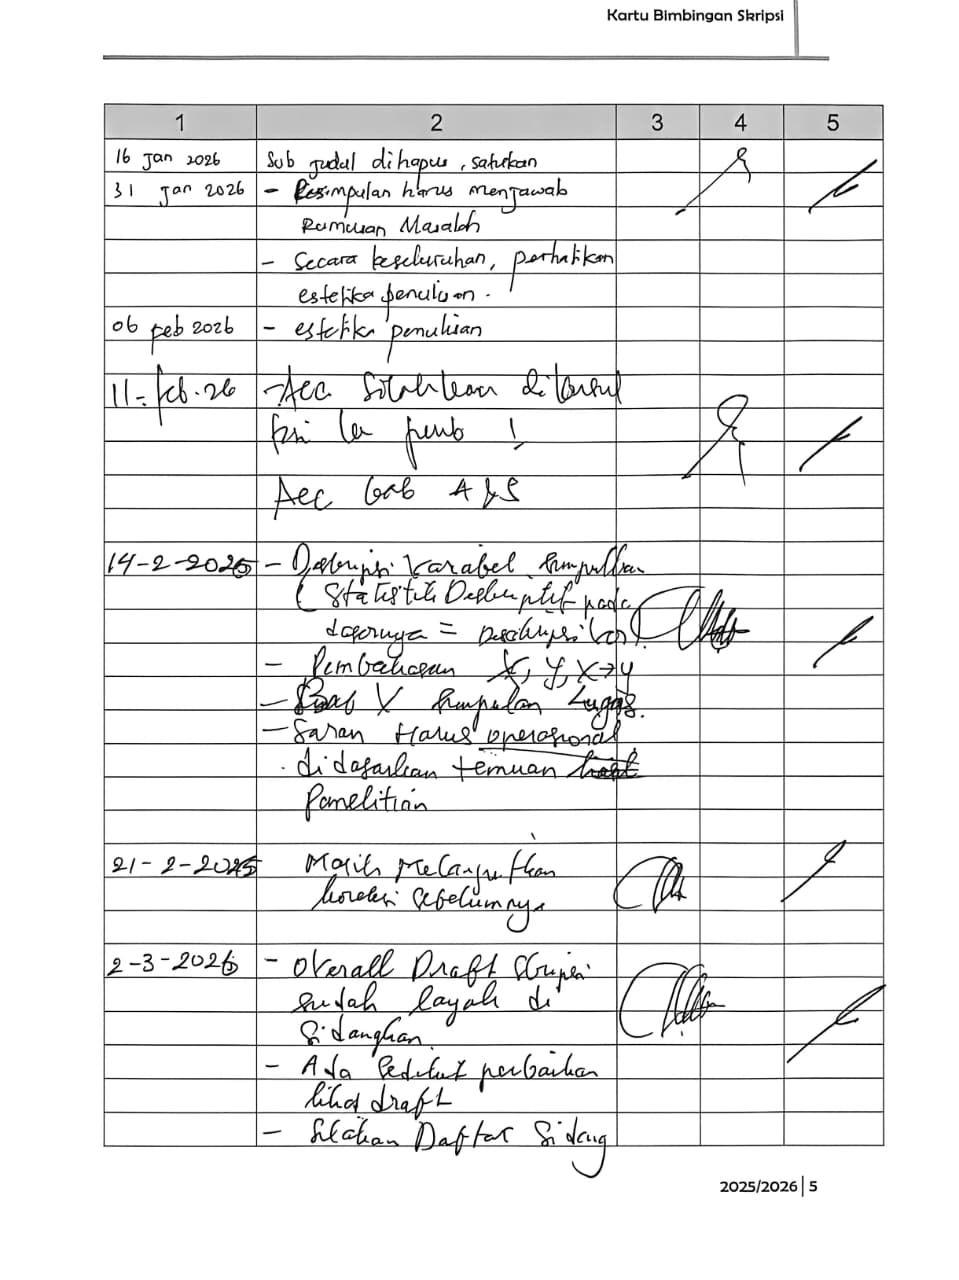 Kartu Bimbingan Skripsi
1 2 3 4 5
16 Jan 2026 Sub judul dihapus, satukan
31 Jan 2026 - Kesimpulan harus menjawab
Rumusan Masalah
- Secara keseluruhan, perhatikan
estetika penulisan.
06 Feb 2026 - estetika penulisan
11-Feb-26 - Acc Silahkan di konsul
ke pemb !
Acc bab 4 & 5
14-2-2026 - Deskripsi Variabel Simpulkan
( Statistik Deskriptif pada
dasarnya = Deskripsi
- Pembahasan X, Y, X→Y
- Bab V Simpulan Lugas.
- Saran Harus operasional
didasarkan temuan
Penelitian
21-2-2026 Masih Melanjutkan
koreksi sebelumnya
2-3-2026 - Overall Draft Skripsi
sudah layak di
Sidangkan
- Ada Sedikit perbaikan
lihat draft
- Silahkan Daftar Sidang
2025/2026 | 5